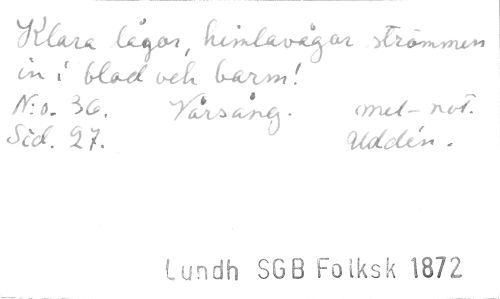 Klara lågor, himlavågor strömmen
in i blod och barm!
N:o. 36. Vårsång. mel-not.
Sid. 27. Uddén.
Lundh SGB Folksk 1872